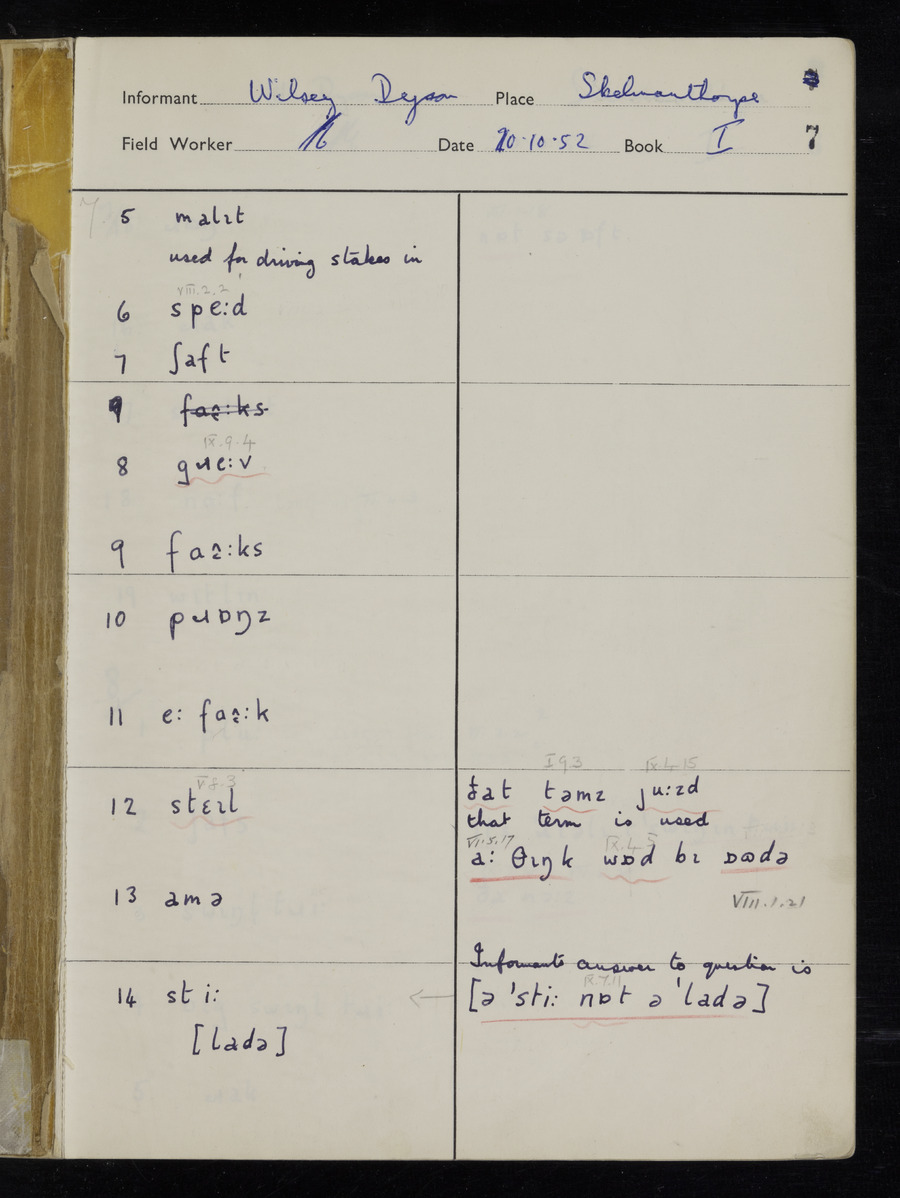 Informant Wilsey Dyson Place Skelmanthorpe
Field Worker Date 20·10·52 Book I 7
7
5 malɪt
used for driving stakes in
VIII.2.2
6 spe:d
7 ʃaft
9
IX.9.4
8 gɹe:v
9 faƨ:ks
10 pɹɒŋz
11 e: faƨ:k
V.8.3
12 stɛɪl
13 amə
14 sti:
[ladə]
I 9.3 IX.4.15
ðat təmz ju:zd
that term is used
VI.5.17 IX.4.5
a: θɪŋk wɒd bɪ ɒʊdə
VIII.1.21
Informants answer to question is
[ə 'sti: nɒt ə 'ladə]